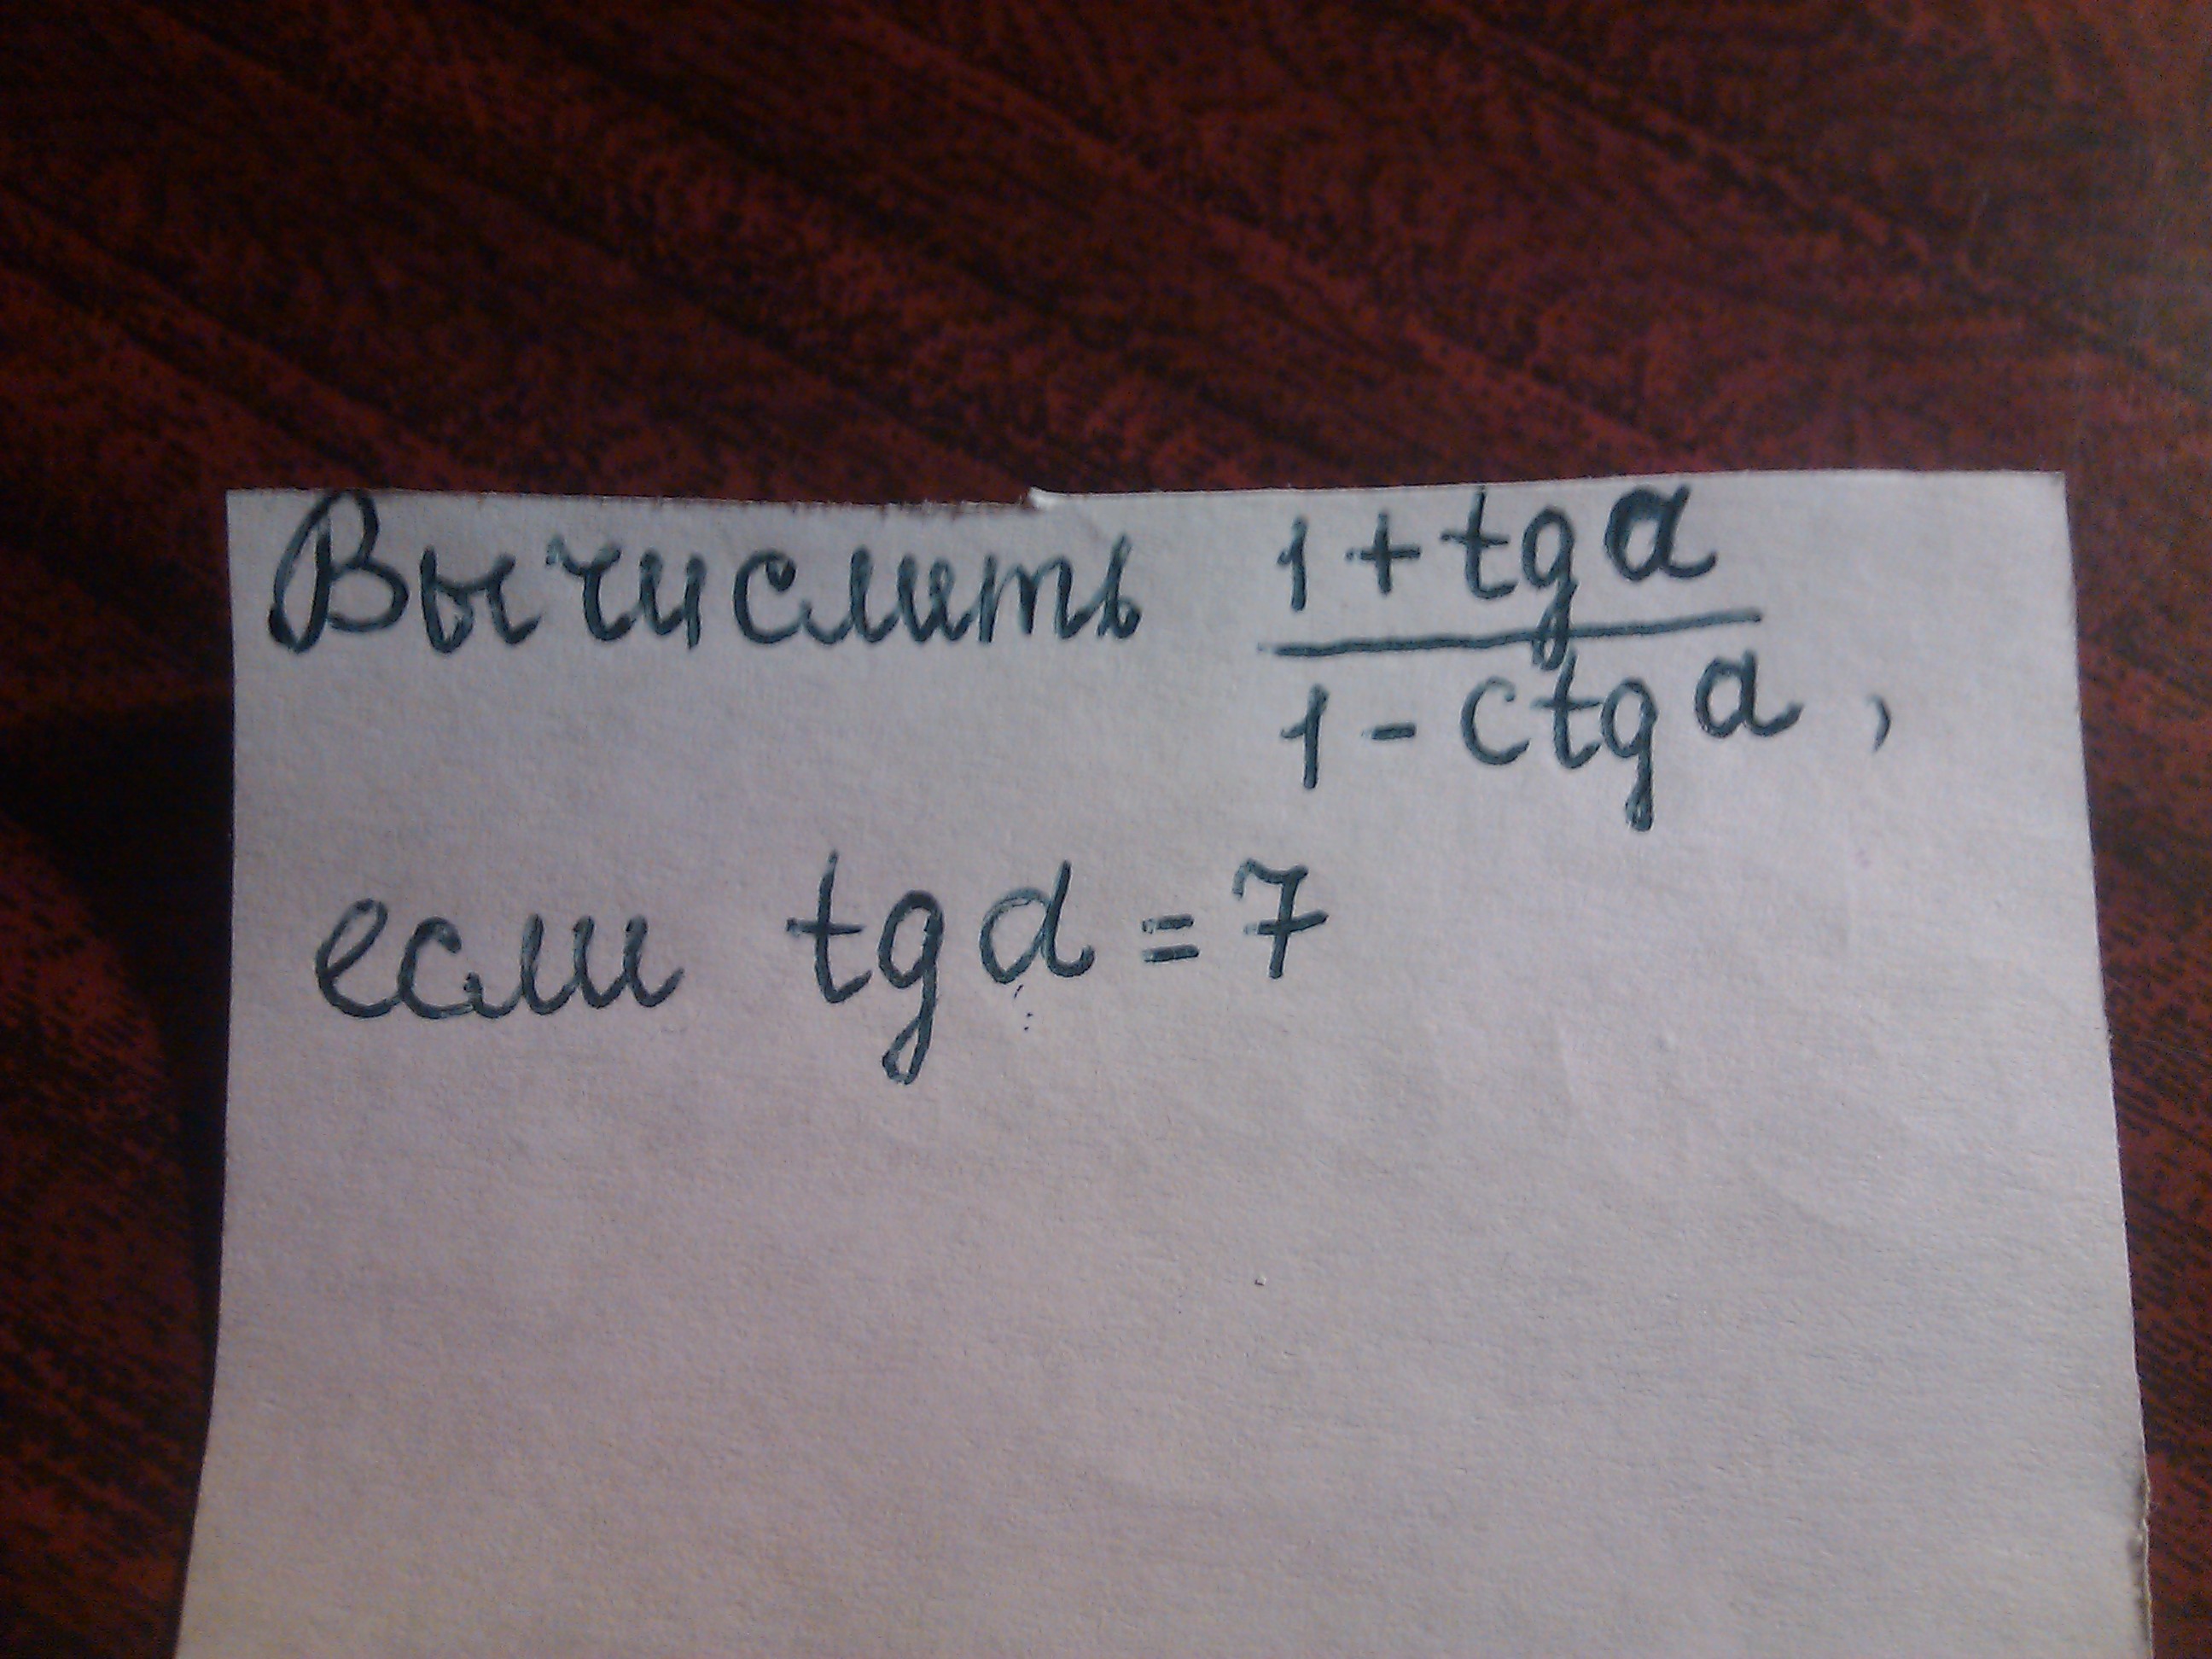 Вычислить 1 + tg α
1 - ctg α ,
если tg α = 7